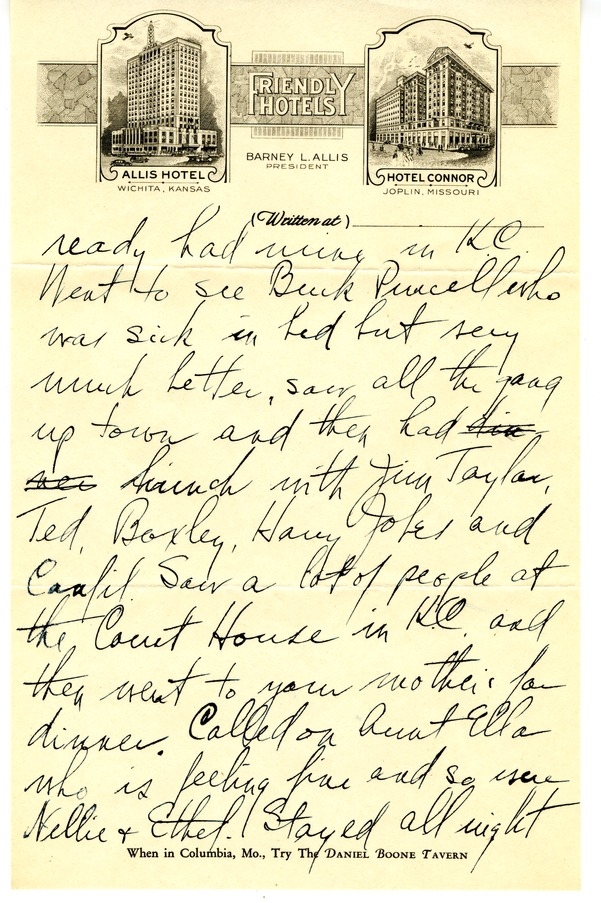 FRIENDLY
HOTELS
BARNEY L. ALLIS
PRESIDENT
ALLIS HOTEL
WICHITA, KANSAS
HOTEL CONNOR
JOPLIN, MISSOURI
(Written at)
ready had mine in K.C.
Went to see Buck Purcell who
was sick in bed but very
much better, saw all the gang
up town and then had din
ner lunch with Jim Taylor,
Ted, Boxley, Harry Jobes and
Canfil. Saw a lot of people at
the Court House in K.C. and
then went to your mother's for
dinner. Called on Aunt Ella
who is feeling fine and so were
Nellie & Ethel. Stayed all night
When in Columbia, Mo., Try The DANIEL BOONE TAVERN